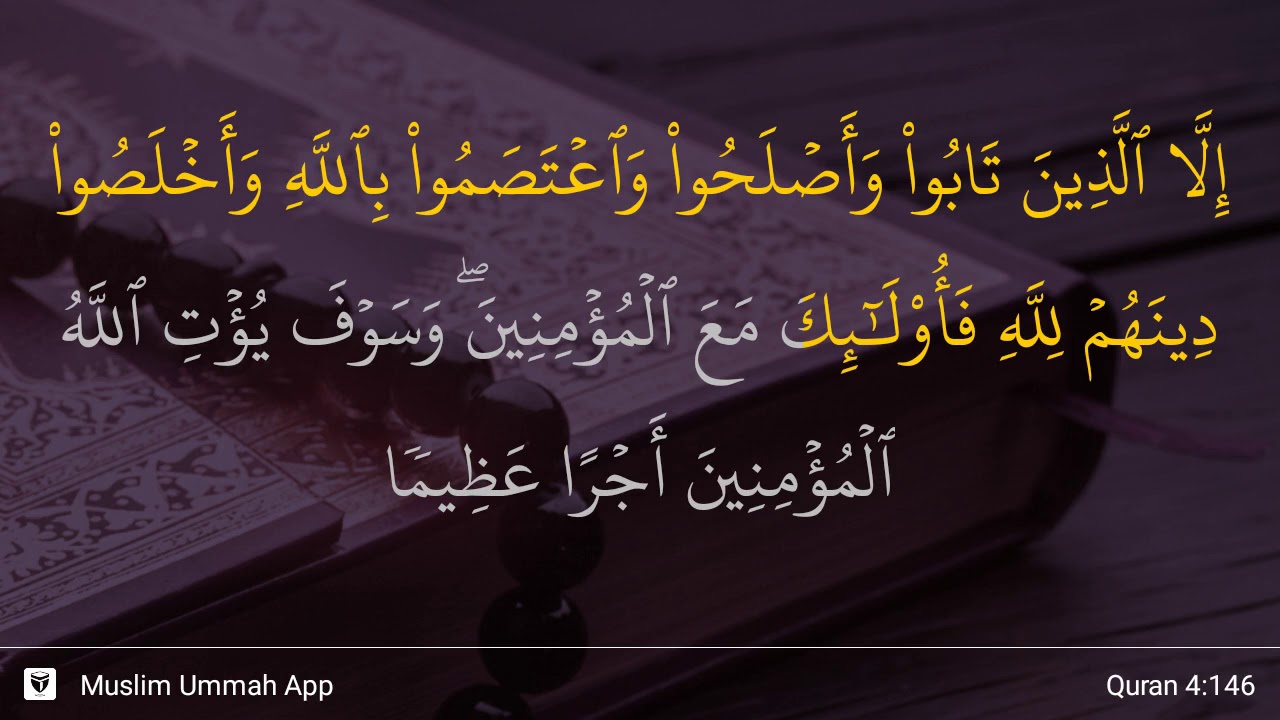 إِلَّا ٱلَّذِينَ تَابُوا۟ وَأَصْلَحُوا۟ وَٱعْتَصَمُوا۟ بِٱللَّهِ وَأَخْلَصُوا۟
دِينَهُمْ لِلَّهِ فَأُو۟لَـٰٓئِكَ مَعَ ٱلْمُؤْمِنِينَ ۖ وَسَوْفَ يُؤْتِ ٱللَّهُ
ٱلْمُؤْمِنِينَ أَجْرًا عَظِيمًا
Muslim Ummah App
Quran 4:146